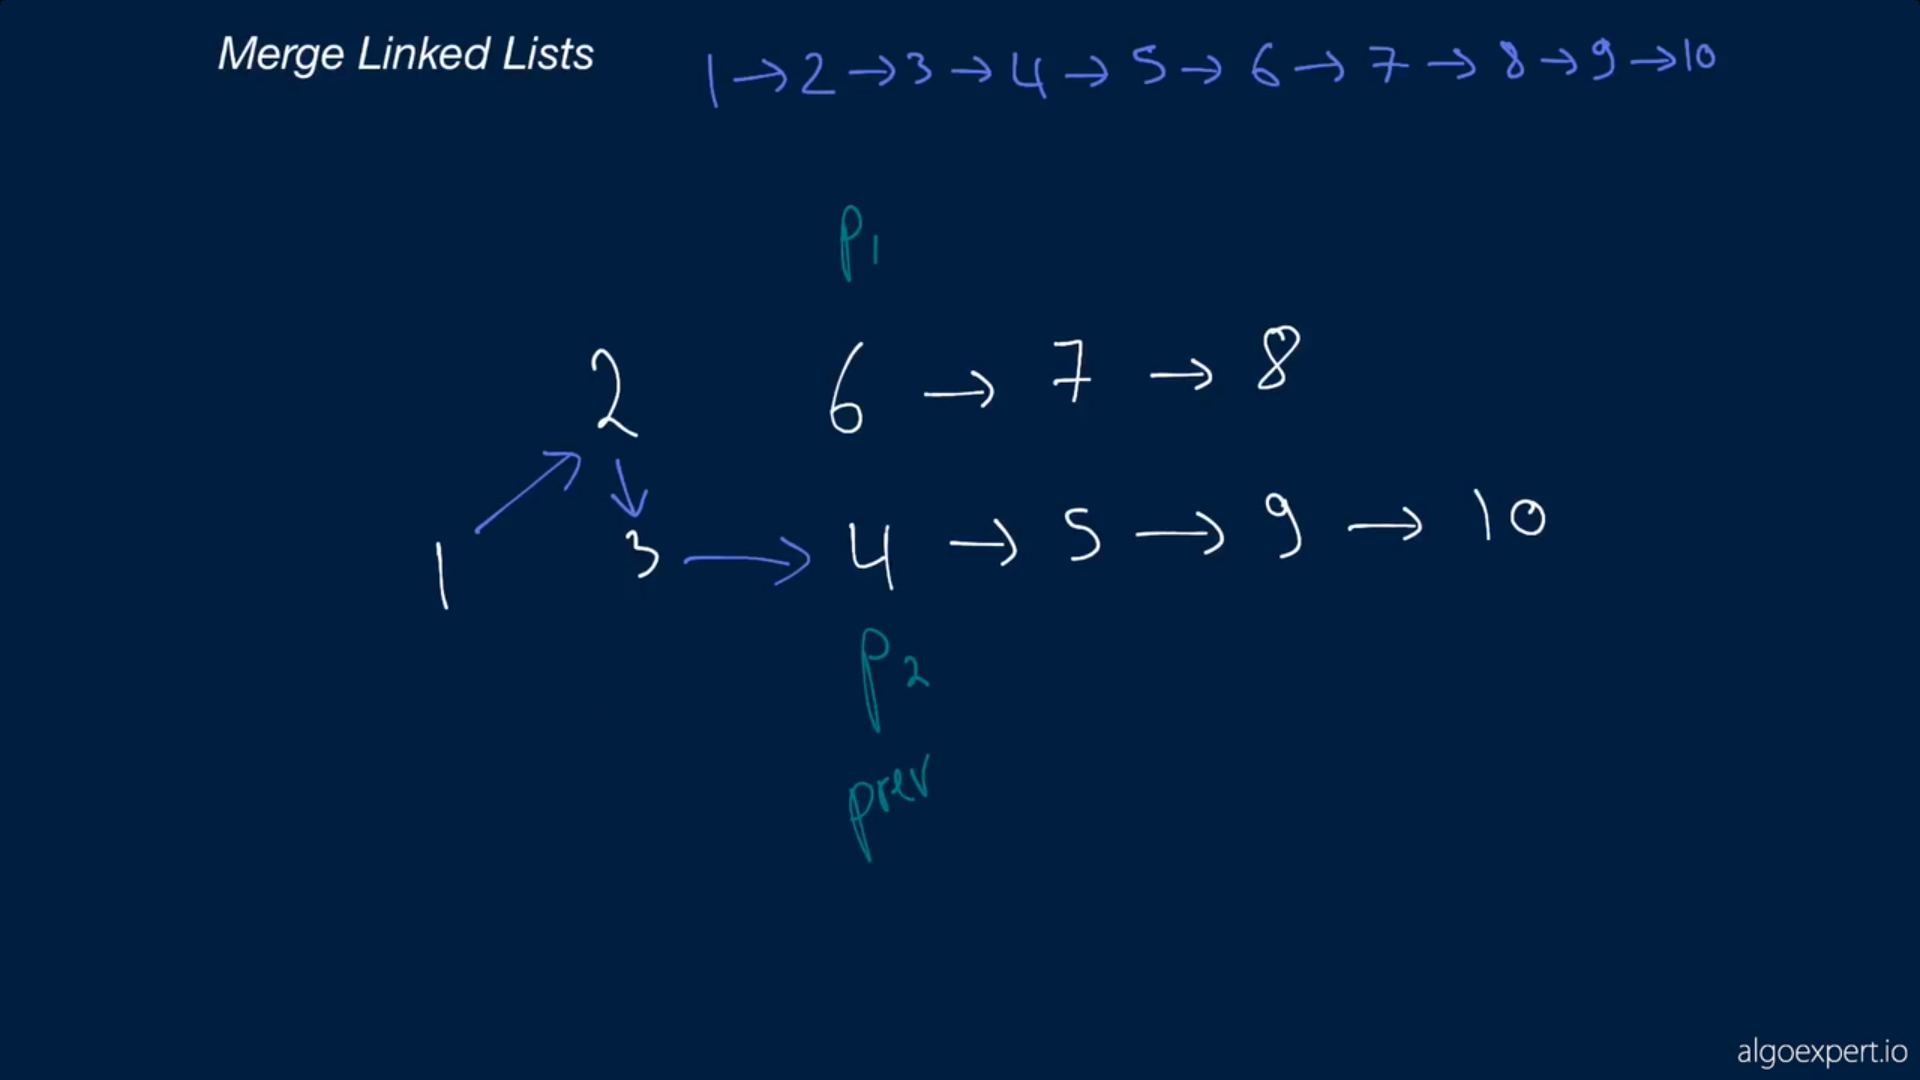 Merge Linked Lists
1 → 2 → 3 → 4 → 5 → 6 → 7 → 8 → 9 → 10
P1
2 6 → 7 → 8
1 3 → 4 → 5 → 9 → 10
P2
prev
algoexpert.io